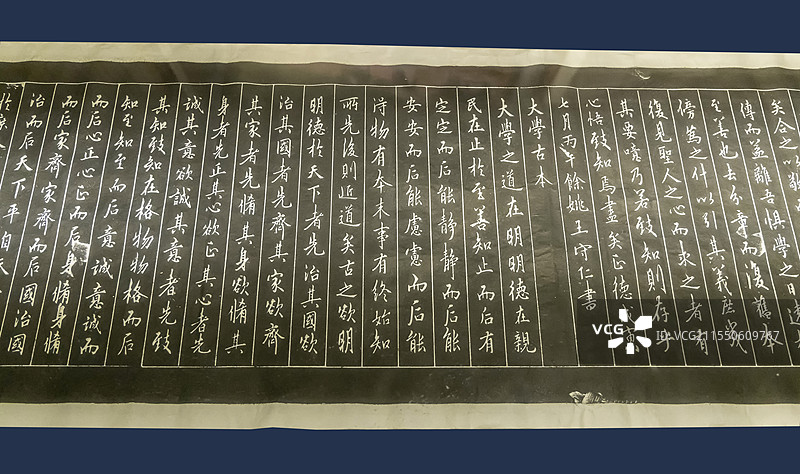 矣合之以敬而
傳而益離吾懼學之日遠於
至善也去分章而復舊本
傍為之什以引其義庶幾
復見聖人之心而求之者有
其要噫乃若致知則存乎
心悟致知焉盡矣正德戊寅
七月丙午餘姚王守仁書
大學古本
大學之道在明明德在親
民在止於至善知止而后有
定定而后能静静而后能
安安而后能慮慮而后能
得物有本末事有終始知
所先後則近道矣古之欲明
明德於天下者先治其國欲
治其國者先齊其家欲齊
其家者先脩其身欲脩其
身者先正其心欲正其心者先
誠其意欲誠其意者先致
其知致知在格物物格而后
知至知至而后意誠意誠而
后心正心正而后身脩身脩
而后家齊家齊而后國治國
治而后天下平自天
VCG
ID:VCG211550609767